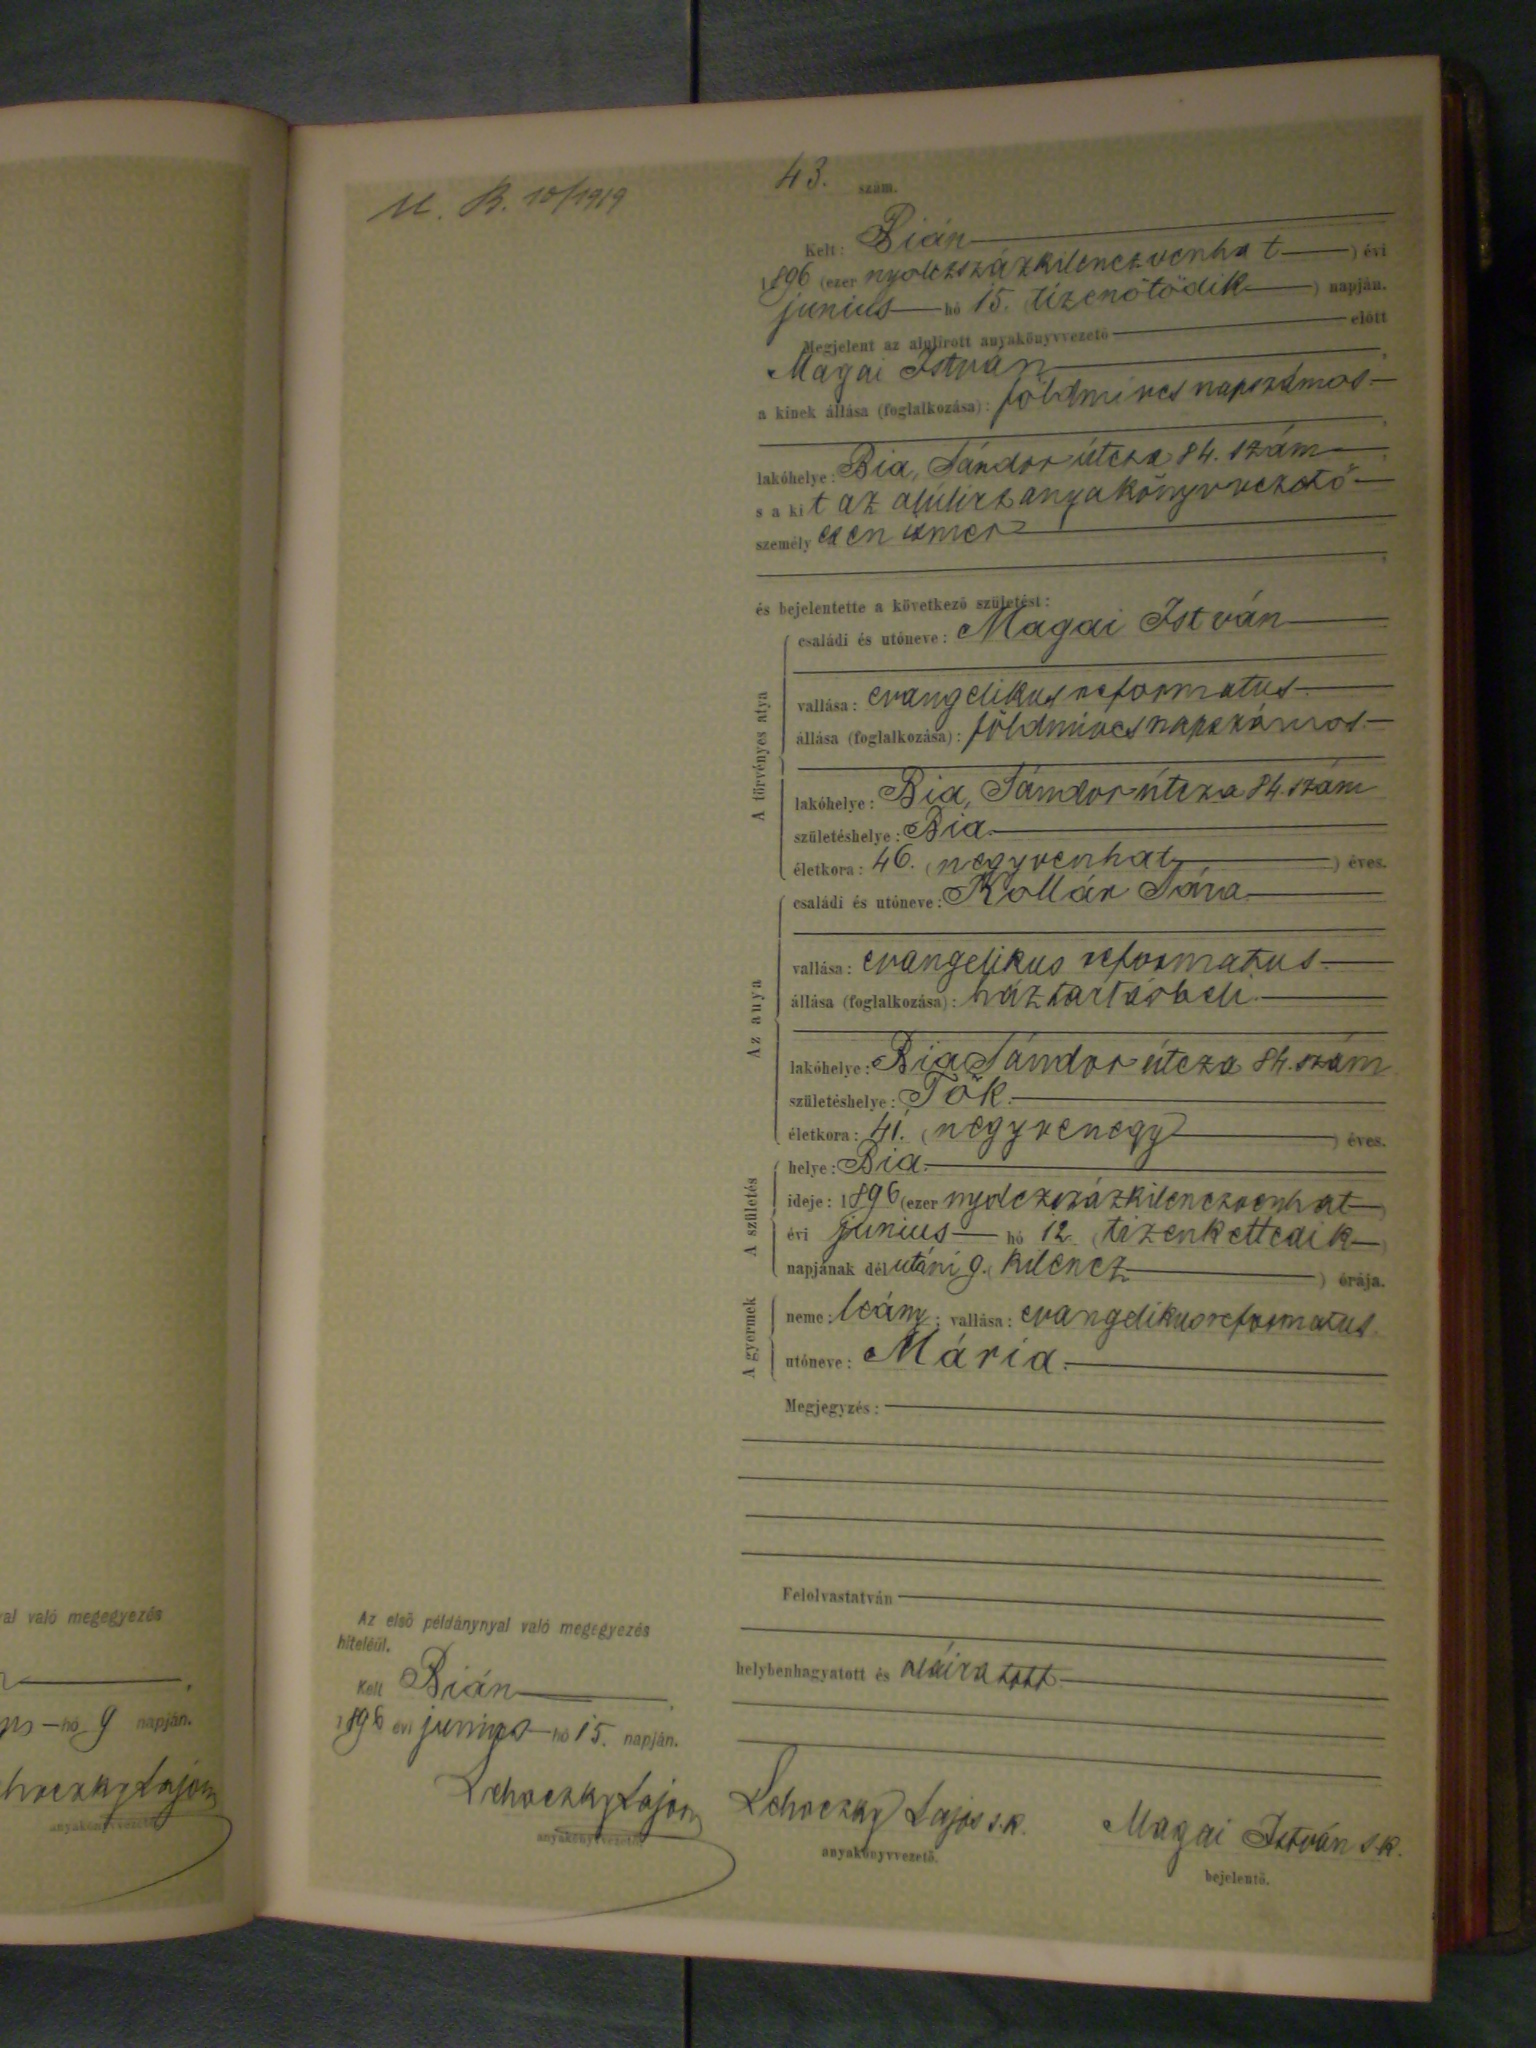 M. B. 10/1919
43. szám.
Kelt: Bián
1896 (ezer nyolczszázkilenczvenhat) évi
junius hó 15. tizenötödik) napján.
Megjelent az alulirott anyakönyvvezető előtt
Magai István
a kinek állása (foglalkozása): földmíves napszámos
lakóhelye: Bia, Sándor útcza 84. szám
s a kit az alúlirt anyakönyvvezető
személyesen ismer
és bejelentette a következő születést:
A törvényes atya
családi és utóneve: Magai István
vallása: evangelikus reformatus
állása (foglalkozása): földmíves napszámos
lakóhelye: Bia, Sándor útcza 84. szám
születéshelye: Bia
életkora: 46. (negyvenhat) éves.
Az anya
családi és utóneve: Kollár Sára
vallása: evangelikus reformatus
állása (foglalkozása): háztartásbeli
lakóhelye: Bia Sándor útcza 84. szám
születéshelye: Tök.
életkora: 41. (negyvenegy) éves.
A születés
helye: Bia.
ideje: 1896 (ezer nyolczszázkilenczvenhat)
évi junius hó 12. (tizenkettedik)
napjának délutáni 9. (kilencz) órája.
A gyermek
neme: leány; vallása: evangelikus reformatus
utóneve: Mária.
Megjegyzés:
Felolvastatván
helybenhagyatott és aláiratott
Lehoczky Lajos s.k.
anyakönyvvezető.
Magai István s.k.
bejelentő.
Az első példánynyal való megegyezés
hiteléül.
Kelt Bián
1896 évi junius hó 15. napján.
Lehoczky Lajos
anyakönyvvezető
al való megegyezés
hó 9 napján.
hoczky Lajos
anyakönyvvezető